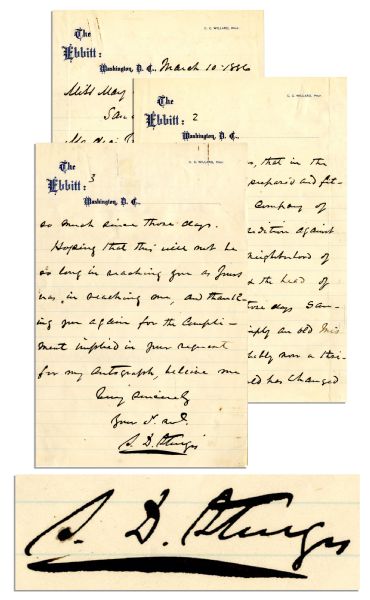 The
Ebbitt:
C. C. WILLARD, Prop.
Washington, D. C., March 10. 1886
Miss May
San
My dear
The
Ebbitt: 2
C. C. WILLARD, Prop.
Washington, D. C.,
, that in the
prepared and fit-
Company of
dition against
neighborhood of
the head of
those days San-
imply an old Mis
bably now a thri-
ld has changed
The
Ebbitt: 3
C. C. WILLARD, Prop.
Washington, D. C.,
so much since those days.
Hoping that this will not be
so long in reaching you as yours
was, in reaching me, and thank-
ing you again for the Compli-
ment implied in your request
for my autograph, believe me
Very sincerely
Your
S. D. Sturgis
S. D. Sturgis